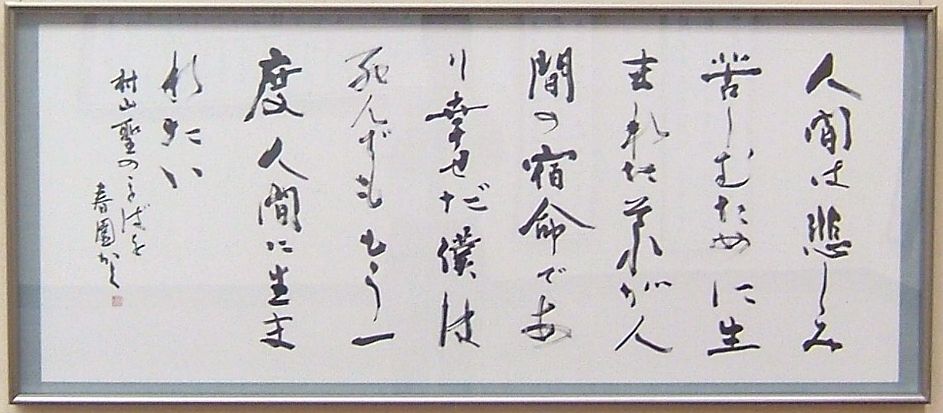 人間は悲しみ
苦しむために生
まれたそれが人
間の宿命であ
り幸せだ僕は
死んでももう一
度人間に生ま
れたい
村山聖のことばを
春園かく